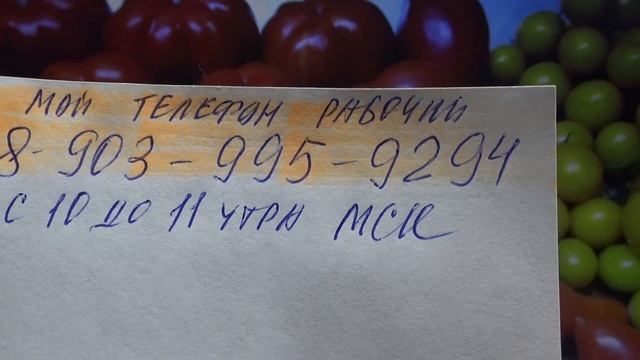 МОЙ ТЕЛЕФОН РАБОЧИЙ
8-903-995-9294
С 10 ДО 11 УТРА МСК